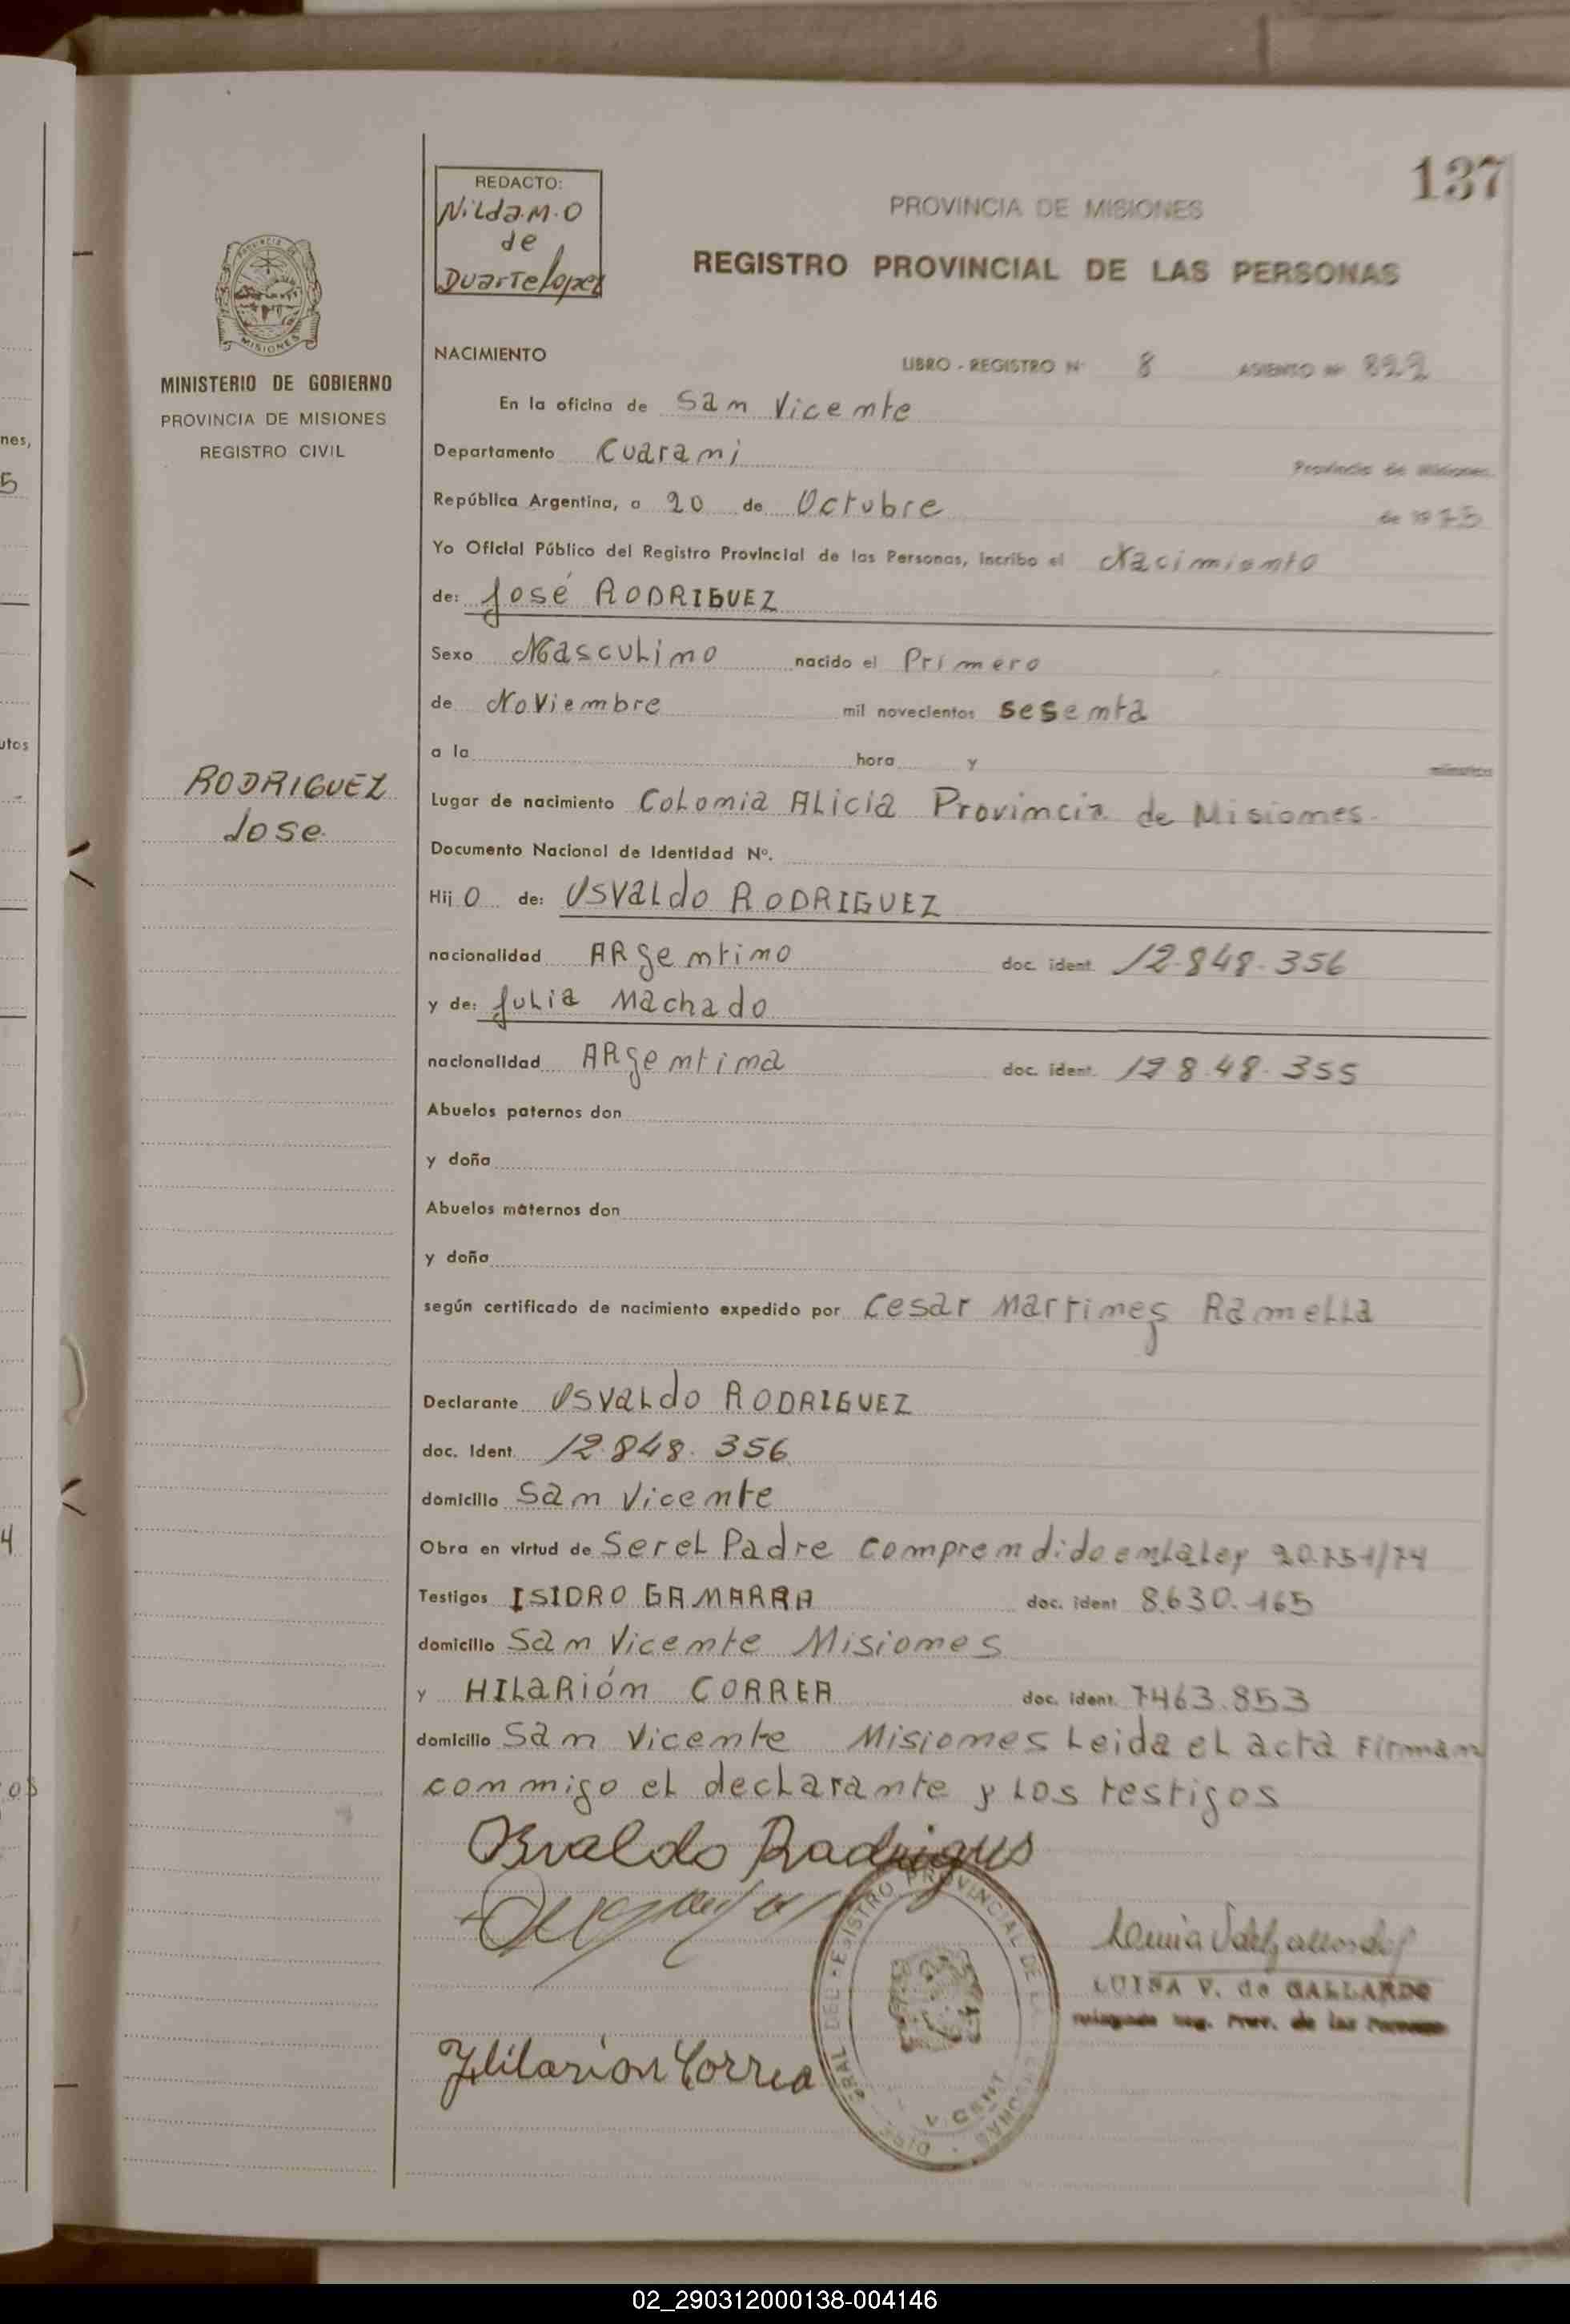 137
REDACTO:
Nilda.M.O
de
Duarte Lopez
PROVINCIA DE MISIONES
REGISTRO PROVINCIAL DE LAS PERSONAS
PROVINCIA DE
MISIONES
MINISTERIO DE GOBIERNO
PROVINCIA DE MISIONES
REGISTRO CIVIL
RODRIGUEZ
Jose
NACIMIENTO LIBRO - REGISTRO Nº 8 ASIENTO Nº 822
En la oficina de San Vicente
Departamento Cuarani Provincia de Misiones
República Argentina, a 20 de Octubre de 1975
Yo Oficial Público del Registro Provincial de las Personas, incribo el Nacimiento
de: José RODRIGUEZ
Sexo Masculino nacido el Primero
de Noviembre mil novecientos sesenta
a la hora y minutos
Lugar de nacimiento Colonia ALicia Provincia de Misiones.
Documento Nacional de Identidad Nº.
Hij o de: Osvaldo RODRIGUEZ
nacionalidad ARgentino doc. ident. 12.848.356
y de: Julia Machado
nacionalidad ARgentina doc. ident. 12 8.48.355
Abuelos paternos don
y doña
Abuelos maternos don
y doña
según certificado de nacimiento expedido por Cesar Martines Ramella
Declarante Osvaldo RODRIGUEZ
doc. Ident. 12.848.356
domicilio San Vicente
Obra en virtud de Ser el Padre Comprendido en la Ley 20.751/74
Testigos ISIDRO GAMARRA doc. ident 8.630.165
domicilio San Vicente Misiones
y HILARIÓN CORREA doc. ident. 7463.853
domicilio San Vicente Misiones Leida el acta Firman
conmigo el declarante y los testigos
Osvaldo Rodrigues
LUISA V. de GALLARDO
Delegada Reg. Prov. de las Personas
Hilarion Correa
02_290312000138-004146